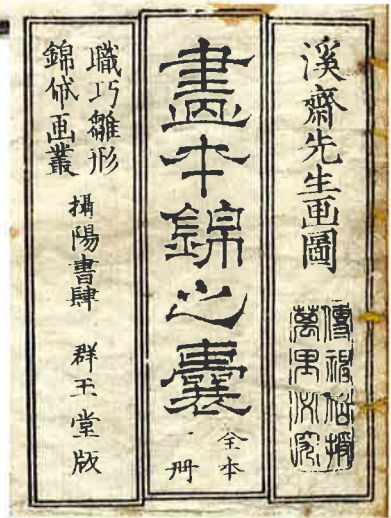 溪齋先生画圖
畫本錦之嚢
全本一冊
職巧雛形
錦袋画叢
攝陽書肆 群玉堂版